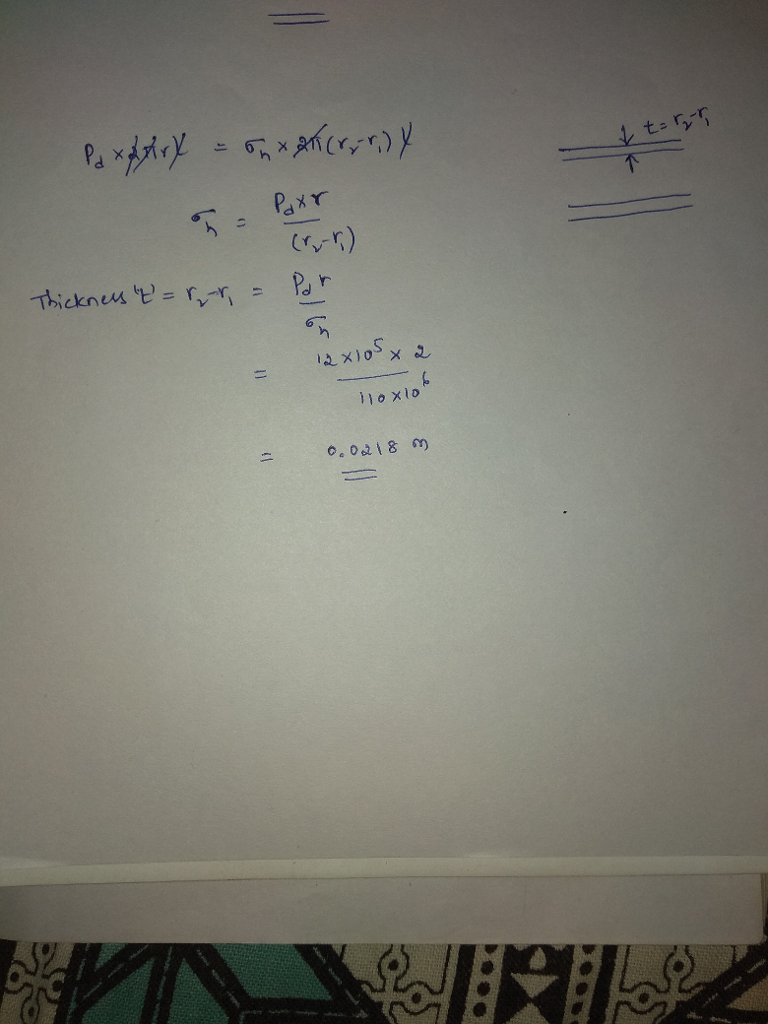 t = r₂-r₁
Pd × 2πr l = σh × 2π(r₂-r₁) l
σh = Pd×r / (r₂-r₁)
Thickness 't' = r₂-r₁ = Pd r / σh
= 12×10⁵ × 2 / 110×10⁶
= 0.0218 m